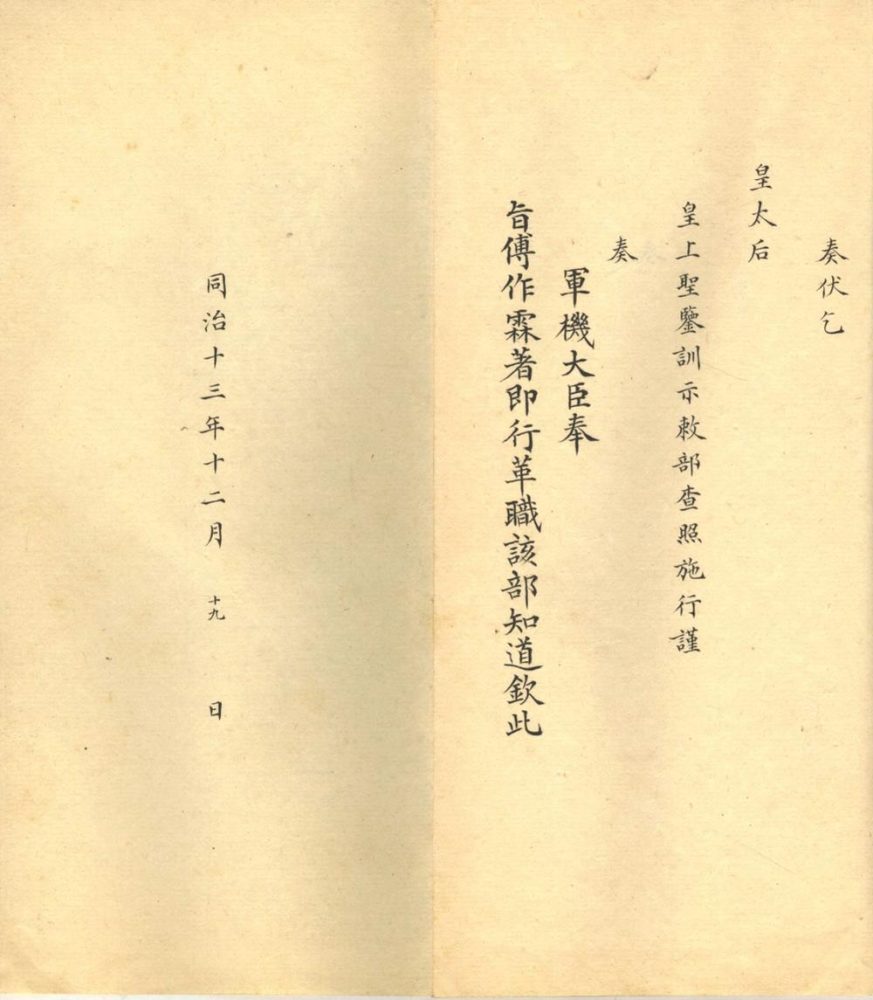 奏伏乞
皇太后
皇上聖鑒訓示敕部查照施行謹
奏
軍機大臣奉
旨傅作霖著即行革職該部知道欽此
同治十三年十二月十九日